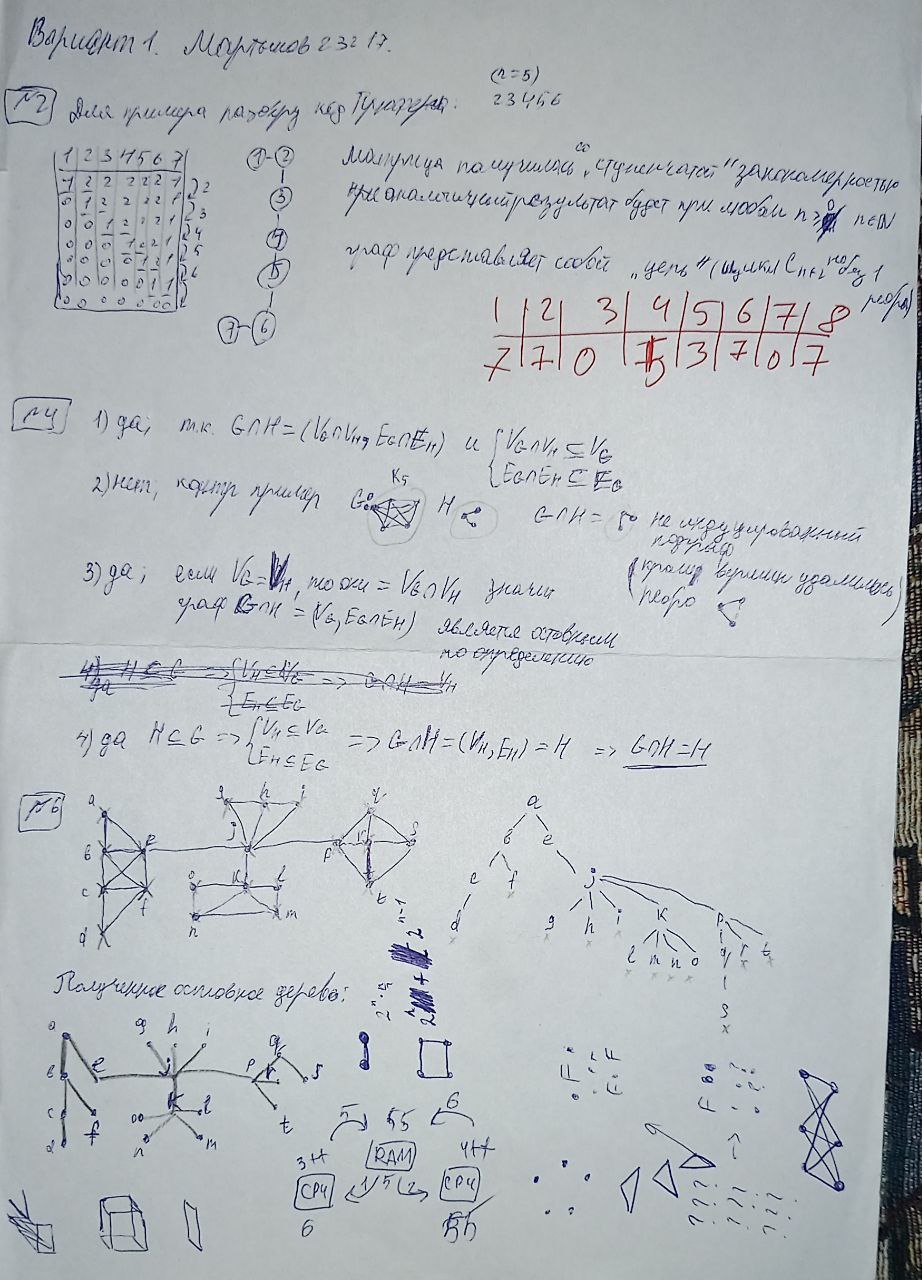 Вариант 1. Мартынов 23217.
(n=5)
№2 Для примера разберу код Прюфера: 23456
1 2 3 4 5 6 7
1 2 2 2 2 2 1 2
0 1 2 2 2 2 1 3
0 0 1 2 2 2 1 4
0 0 0 1 2 2 1 5
0 0 0 0 1 2 1 6
0 0 0 0 0 1 1
0 0 0 0 0 0 0
1 2
3
4
5
7 6
Матрица получилась со „ступенчатой" закономерностью
при аналогичный результат будет при любом n≥0 n∈N
граф представляет собой „цепь" (цикл Cn+2 но без 1
ребра)
1 2 3 4 5 6 7 8
7 7 0 5 3 7 0 7
№4 1) да, т.к. G∩H=(VG∩VH, EG∩EH) и {VG∩VH⊆VG
EG∩EH⊆EG
2) нет, контр пример G K5 H G∩H= не индуцированный
подграф
(кроме вершин удалилось
ребро )
3) да, если VG=VH, то они = VG∩VH значит
граф G∩H=(VG, EG∩EH) является остовным
по определению
4) да H⊆G => {VH⊆VG
EH⊆EG => G∩H=(VH, EH)=H => G∩H=H
№6
a b c d e f g h i j k l m n o p q r s t
a
b e
c f j
d g h i k p
l m n o q r t
s
Полученное остовное дерево:
a b c d e f g h i j k l m n o p q r s t
2ⁿ⁻¹
5 55 6
3H RAM 4H
CPU 1 5 2 CPU
6 55